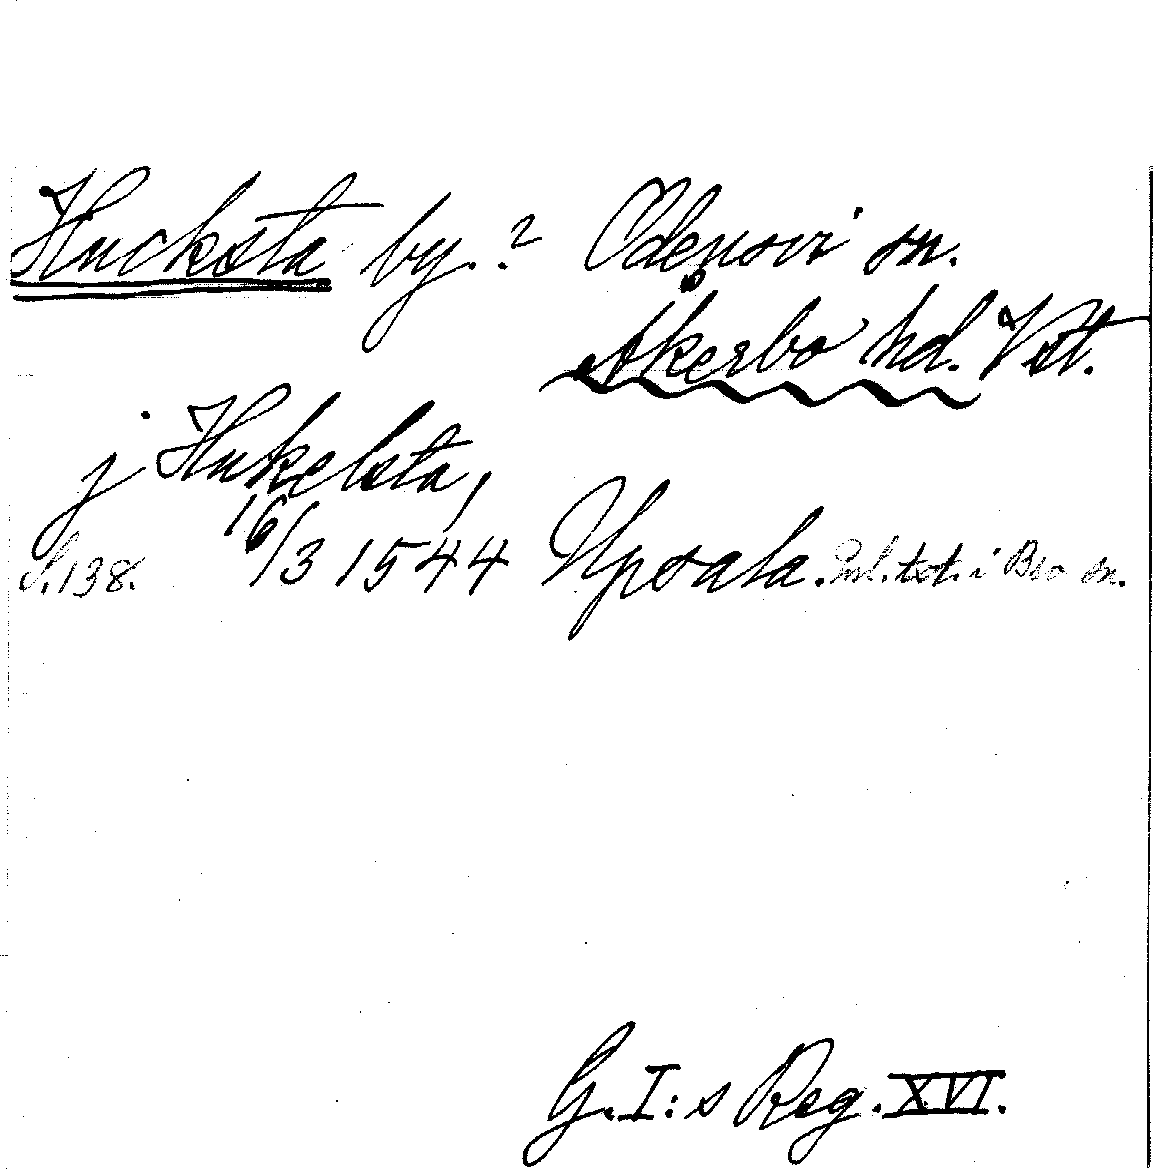 Hucksta by.? Odensvi sn.
Åkerbo hd. Vstl.
j Hukelsta,
S. 138. 16/3 1544 Upsala. Enl. text. i Bro sn.
G. I:s Reg. XVI.